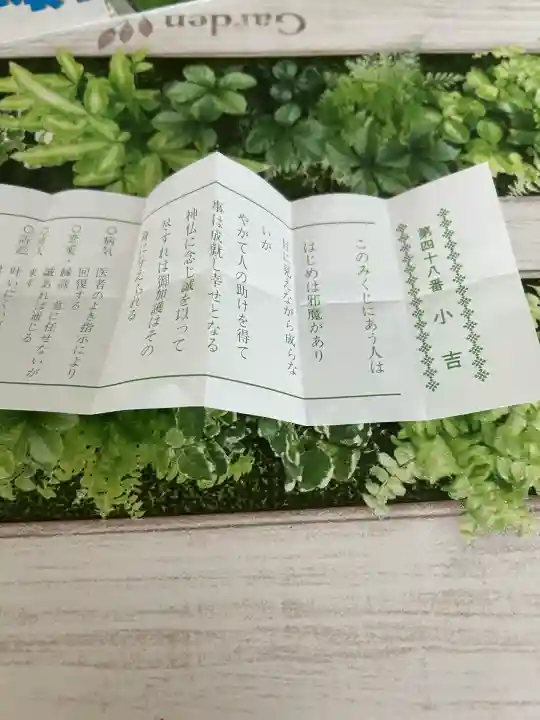 Garden
第四十八番 小吉
このみくじにあう人は
はじめは邪魔があり
目に見えながら成らな
いが
やがて人の助けを得て
事は成就し幸せとなる
神仏に念じ誠を以って
尽すれば御加護はその
身に与えられる
◎病気 医者のよき指示により
回復する
◎恋愛・縁談 意に任せないが
誠あれば通じる
ます
◎訴訟 叶いにくい